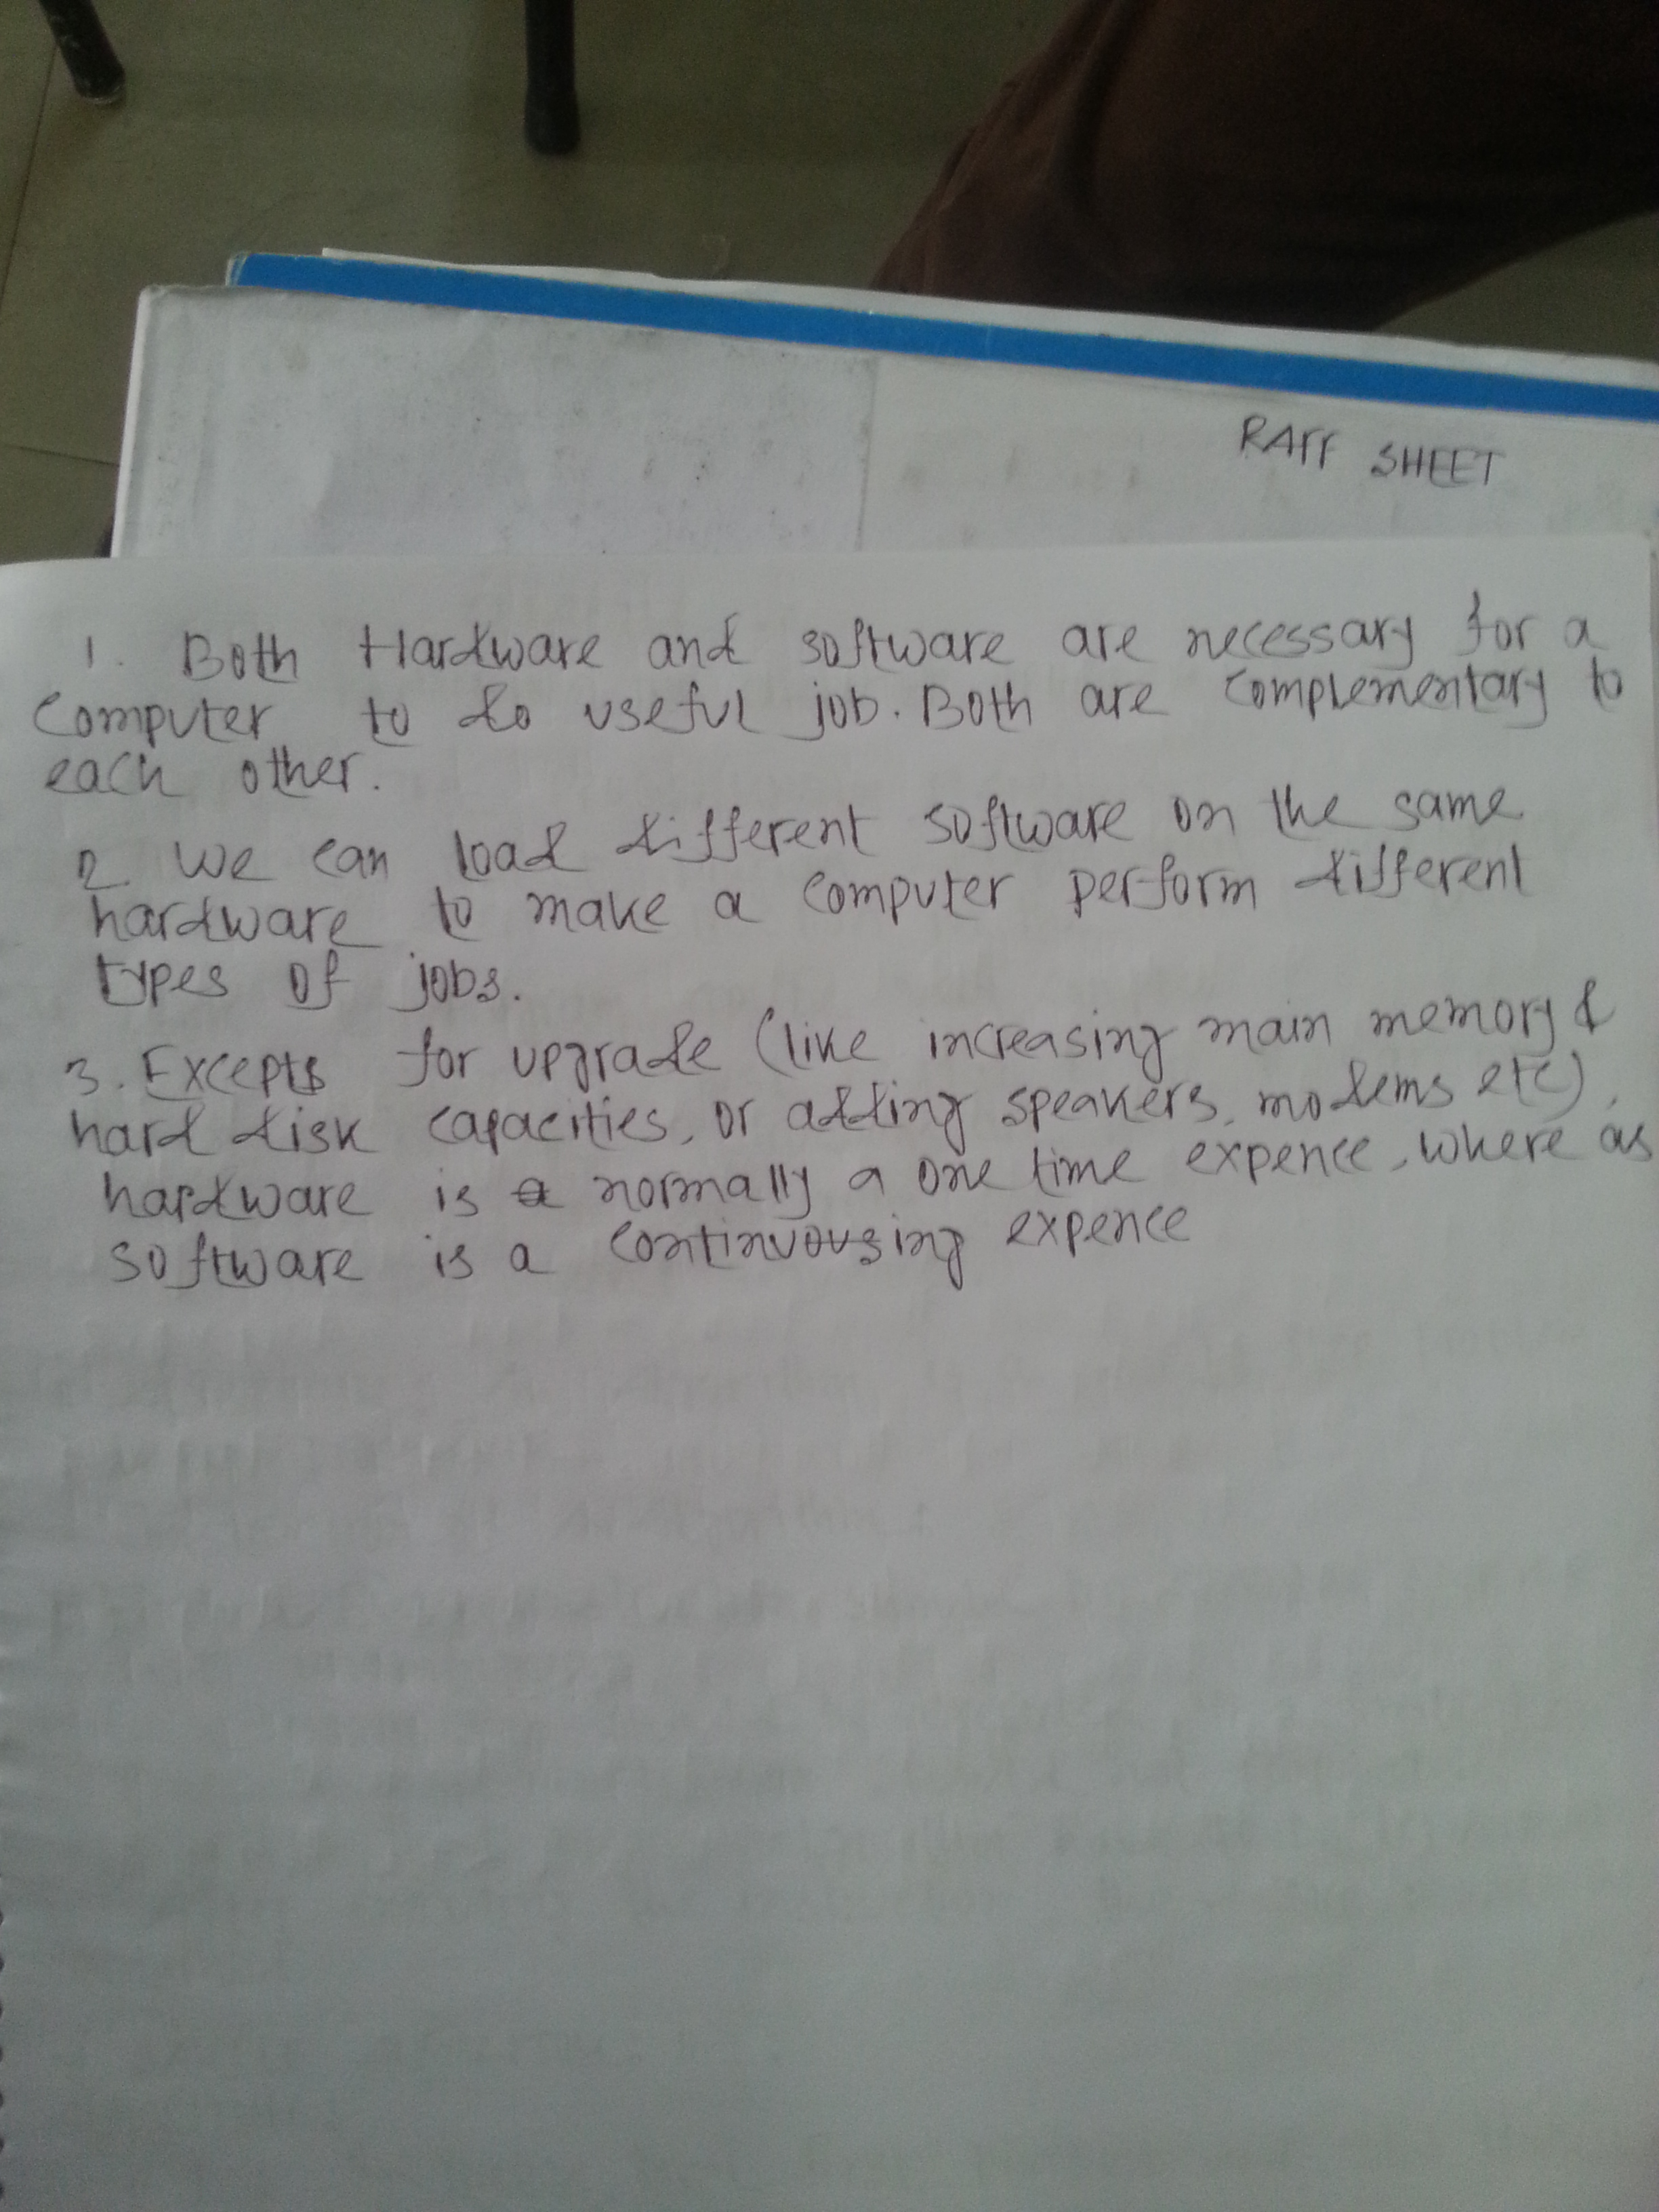 RAFF SHEET
1. Both Hardware and software are necessary for a
computer to do useful job. Both are complementary to
each other.
2 we can load different software on the same
hardware to make a computer perform different
types of jobs.
3. Excepts for upgrade (like increasing main memory &
hard disk capacities, or adding speakers, modems etc),
hardware is normally a one time expence, where as
software is a continuousing expence